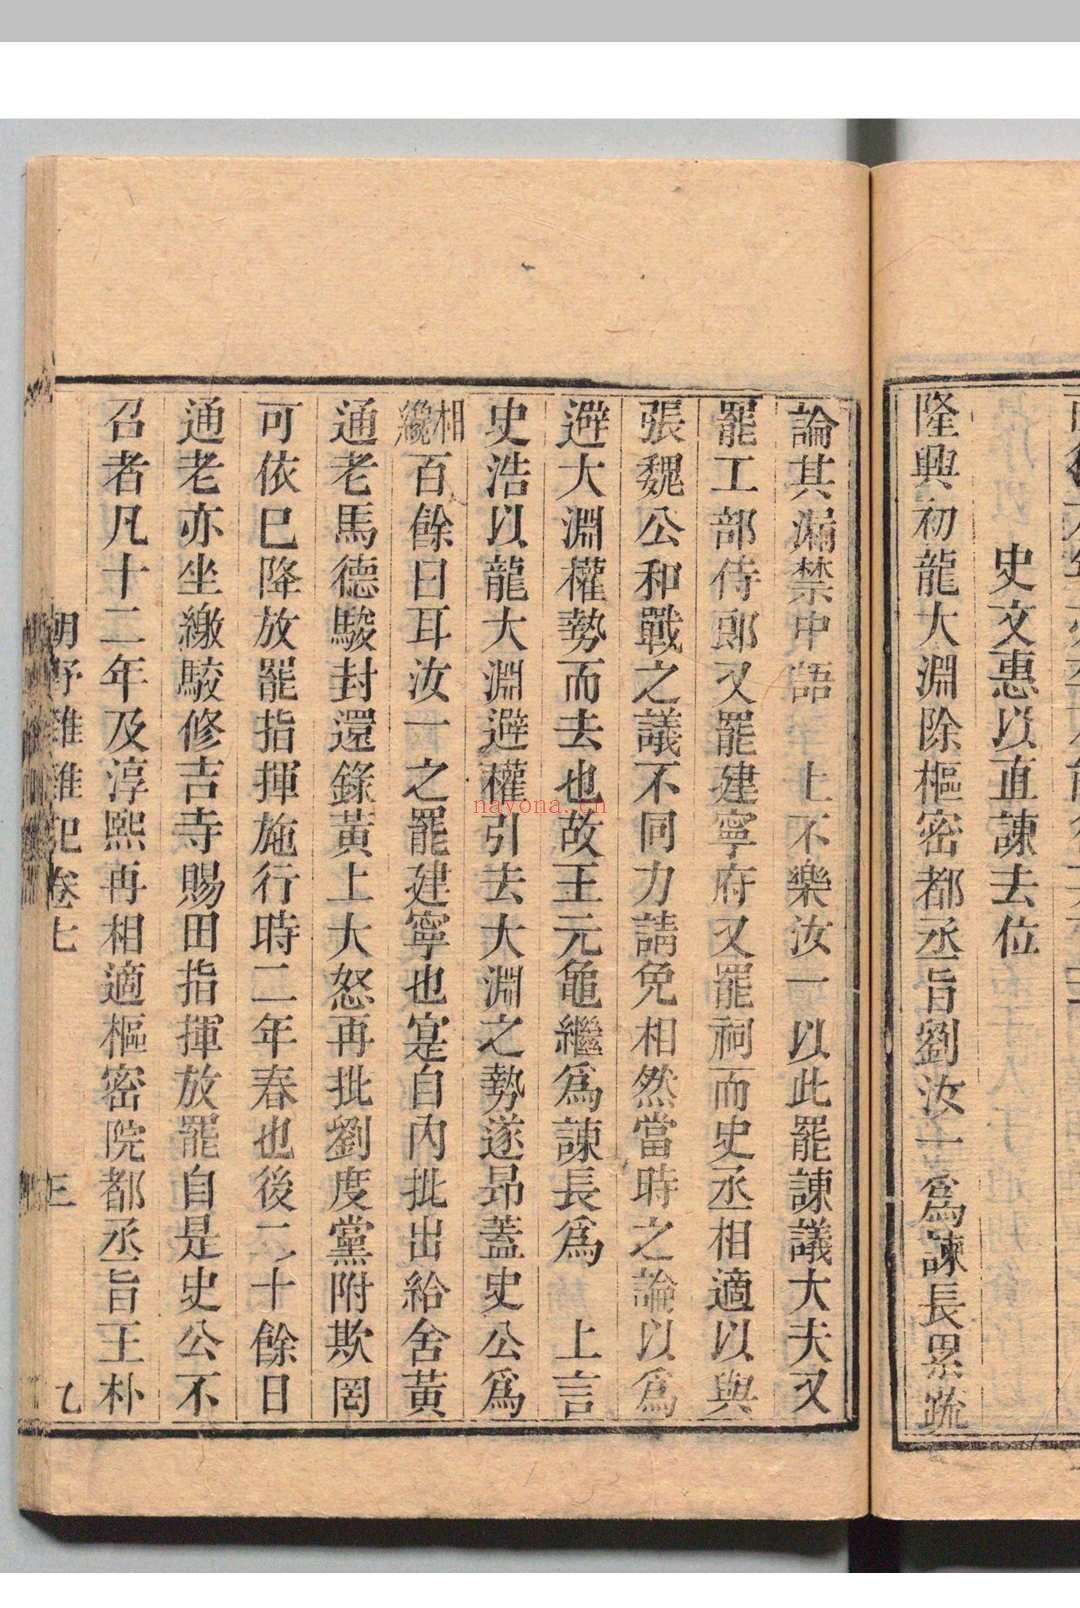 史文惠以直諫去位
隆興初龍大淵除樞密都丞旨劉汝一爲諫長累䟽
論其漏禁中語 上不樂汝一以此罷諫議大夫又
罷工部侍郎又罷建寧府又罷祠而史丞相適以與
張魏公和戰之議不同力請免相然當時之論以爲
避大淵權勢而去也故王元龜繼爲諫長爲 上言
史浩以龍大淵避權引去大淵之勢遂昂蓋史公爲
相纔百餘日耳汝一之罷建寧也寔自內批出給舍黃
通老馬德駿封還錄黃上大怒再批劉度黨附欺罔
可依巳降放罷指揮施行時二年春也後二十餘日
通老亦坐繳駮修吉寺賜田指揮放罷自是史公不
召者凡十二年及淳熙再相適樞密院都丞旨王朴
朝野雜雜記卷七 三 乙
nayona.cn